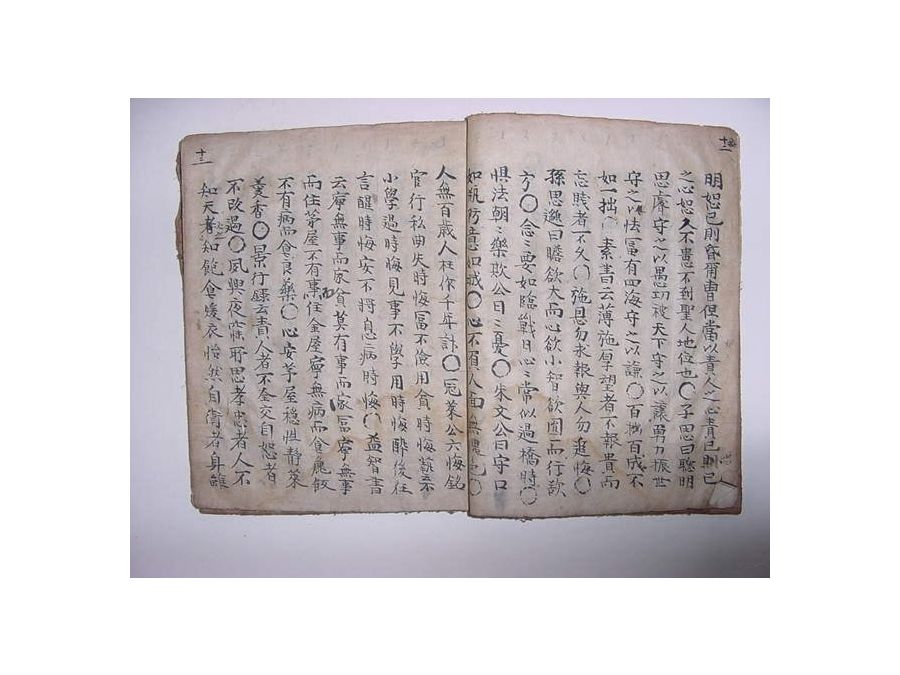 明恕己則昏爾曹但當以責人之心責己則己
之心恕人不患不到聖人地位也〇子思曰聰明
思慮守之以愚功被天下守之以讓勇力振世
守之以怯冨有四海守之以謙〇百百成不
如一拙 素書云薄施厚望者不報貴而
忘賎者不久〇施恩勿求報與人勿追悔〇
孫思邈曰膽欲大而心欲小智欲圓而行欲
方〇念〻要如臨戰日心〻常似過橋時〇
惧法朝〻樂欺公日〻憂〇朱文公曰守口
如瓶防意如城〇心不負人面無愧色〇
十三
人無百歲人枉作千年計〇冦萊公六悔銘
官行私曲失時悔冨不儉用貧時悔藝不
小學過時悔見事不學用時悔醉後狂
言醒時悔安不將息病時悔〇益智書
云寧無事而家貧莫有事而家冨寧無事
而住茅屋不有事而住金屋寧無病而食麁飯
不有病而食良藥〇心安茅屋穩性靜菜
羹香〇景行錄云責人者不全交自恕者
不改過〇夙興夜寐所思孝忠者人不
知天者知飽食煖衣怡然自衛者身雖